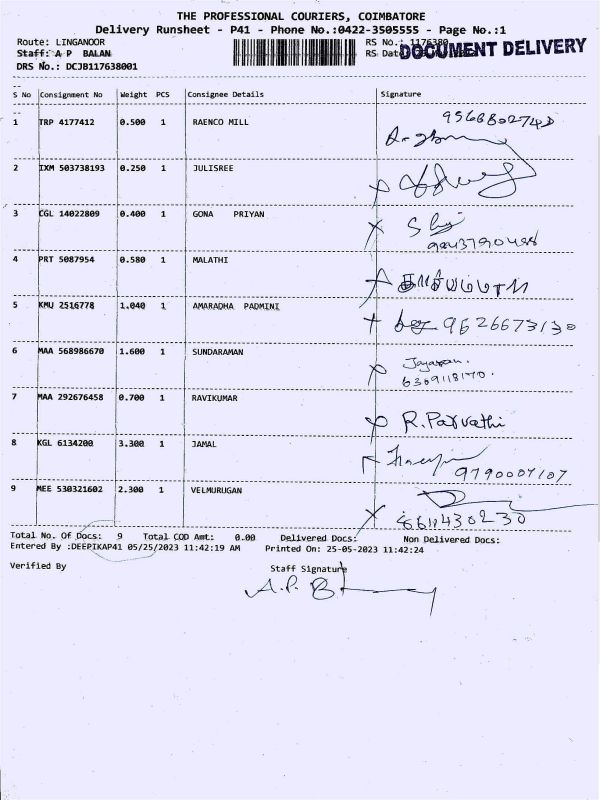 THE PROFESSIONAL COURIERS, COIMBATORE
Delivery Runsheet - P41 - Phone No.:0422-3505555 - Page No.:1
Route: LINGANOOR RS No.: 1176380
Staff: A P BALAN RS Date
DOCUMENT DELIVERY
DRS No.: DCJB117638001
S No Consignment No Weight PCS Consignee Details Signature
1 TRP 4177412 0.500 1 RAENCO MILL
2 IXM 503738193 0.250 1 JULISREE
3 CGL 14022809 0.400 1 GONA PRIYAN
4 PRT 5087954 0.580 1 MALATHI
5 KMU 2516778 1.040 1 AMARADHA PADMINI 9626673130
6 MAA 568986670 1.600 1 SUNDARAMAN
6309118170.
7 MAA 292676458 0.700 1 RAVIKUMAR R. Parvathi
8 KGL 6134200 3.300 1 JAMAL
9790007107
9 MEE 530321602 2.300 1 VELMURUGAN
Total No. Of Docs: 9 Total COD Amt: 0.00 Delivered Docs: Non Delivered Docs:
Entered By :DEEPIKAP41 05/25/2023 11:42:19 AM Printed On: 25-05-2023 11:42:24
Verified By Staff Signature
A.P.